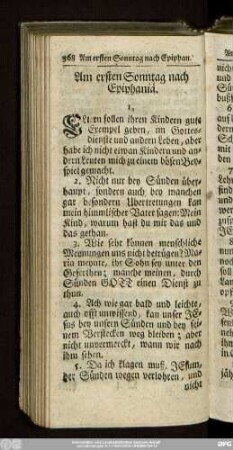 968 Am ersten Sonntag nach Epiphan.
Am ersten Sonntag nach
Epiphaniä.
1.
Eltern sollen ihren Kindern gute
Exempel geben, im Gottes-
dienste und andern Leben, aber
habe ich nicht etwan Kindern und an-
dern Leuten mich zu einem bösen Bey-
spiel gemacht.
2. Nicht nur bey Sünden über-
haupt, sondern auch bey manchen
gar besondern Ubertretungen kan
mein himmlischer Vater sagen: Mein
Kind, warum hast du mir das und
das gethan.
3. Wie sehr können menschliche
Meynungen uns nicht betrügen? Ma-
ria meynte, ihr Sohn sey unter den
Gefehrten; manche meinen, durch
Sünden GOTT einen Dienst zu
thun.
4. Ach wie gar bald und leichte,
auch offt unwissend, kan unser JE-
sus bey unsern Sünden und bey sei-
nem Verstecken weg bleiben; aber
nicht unvermerckt, wann wir nach
ihm sehen.
5. Da ich klagen muß, JEsum,
der Sünden wegen verlohren, und
nicht